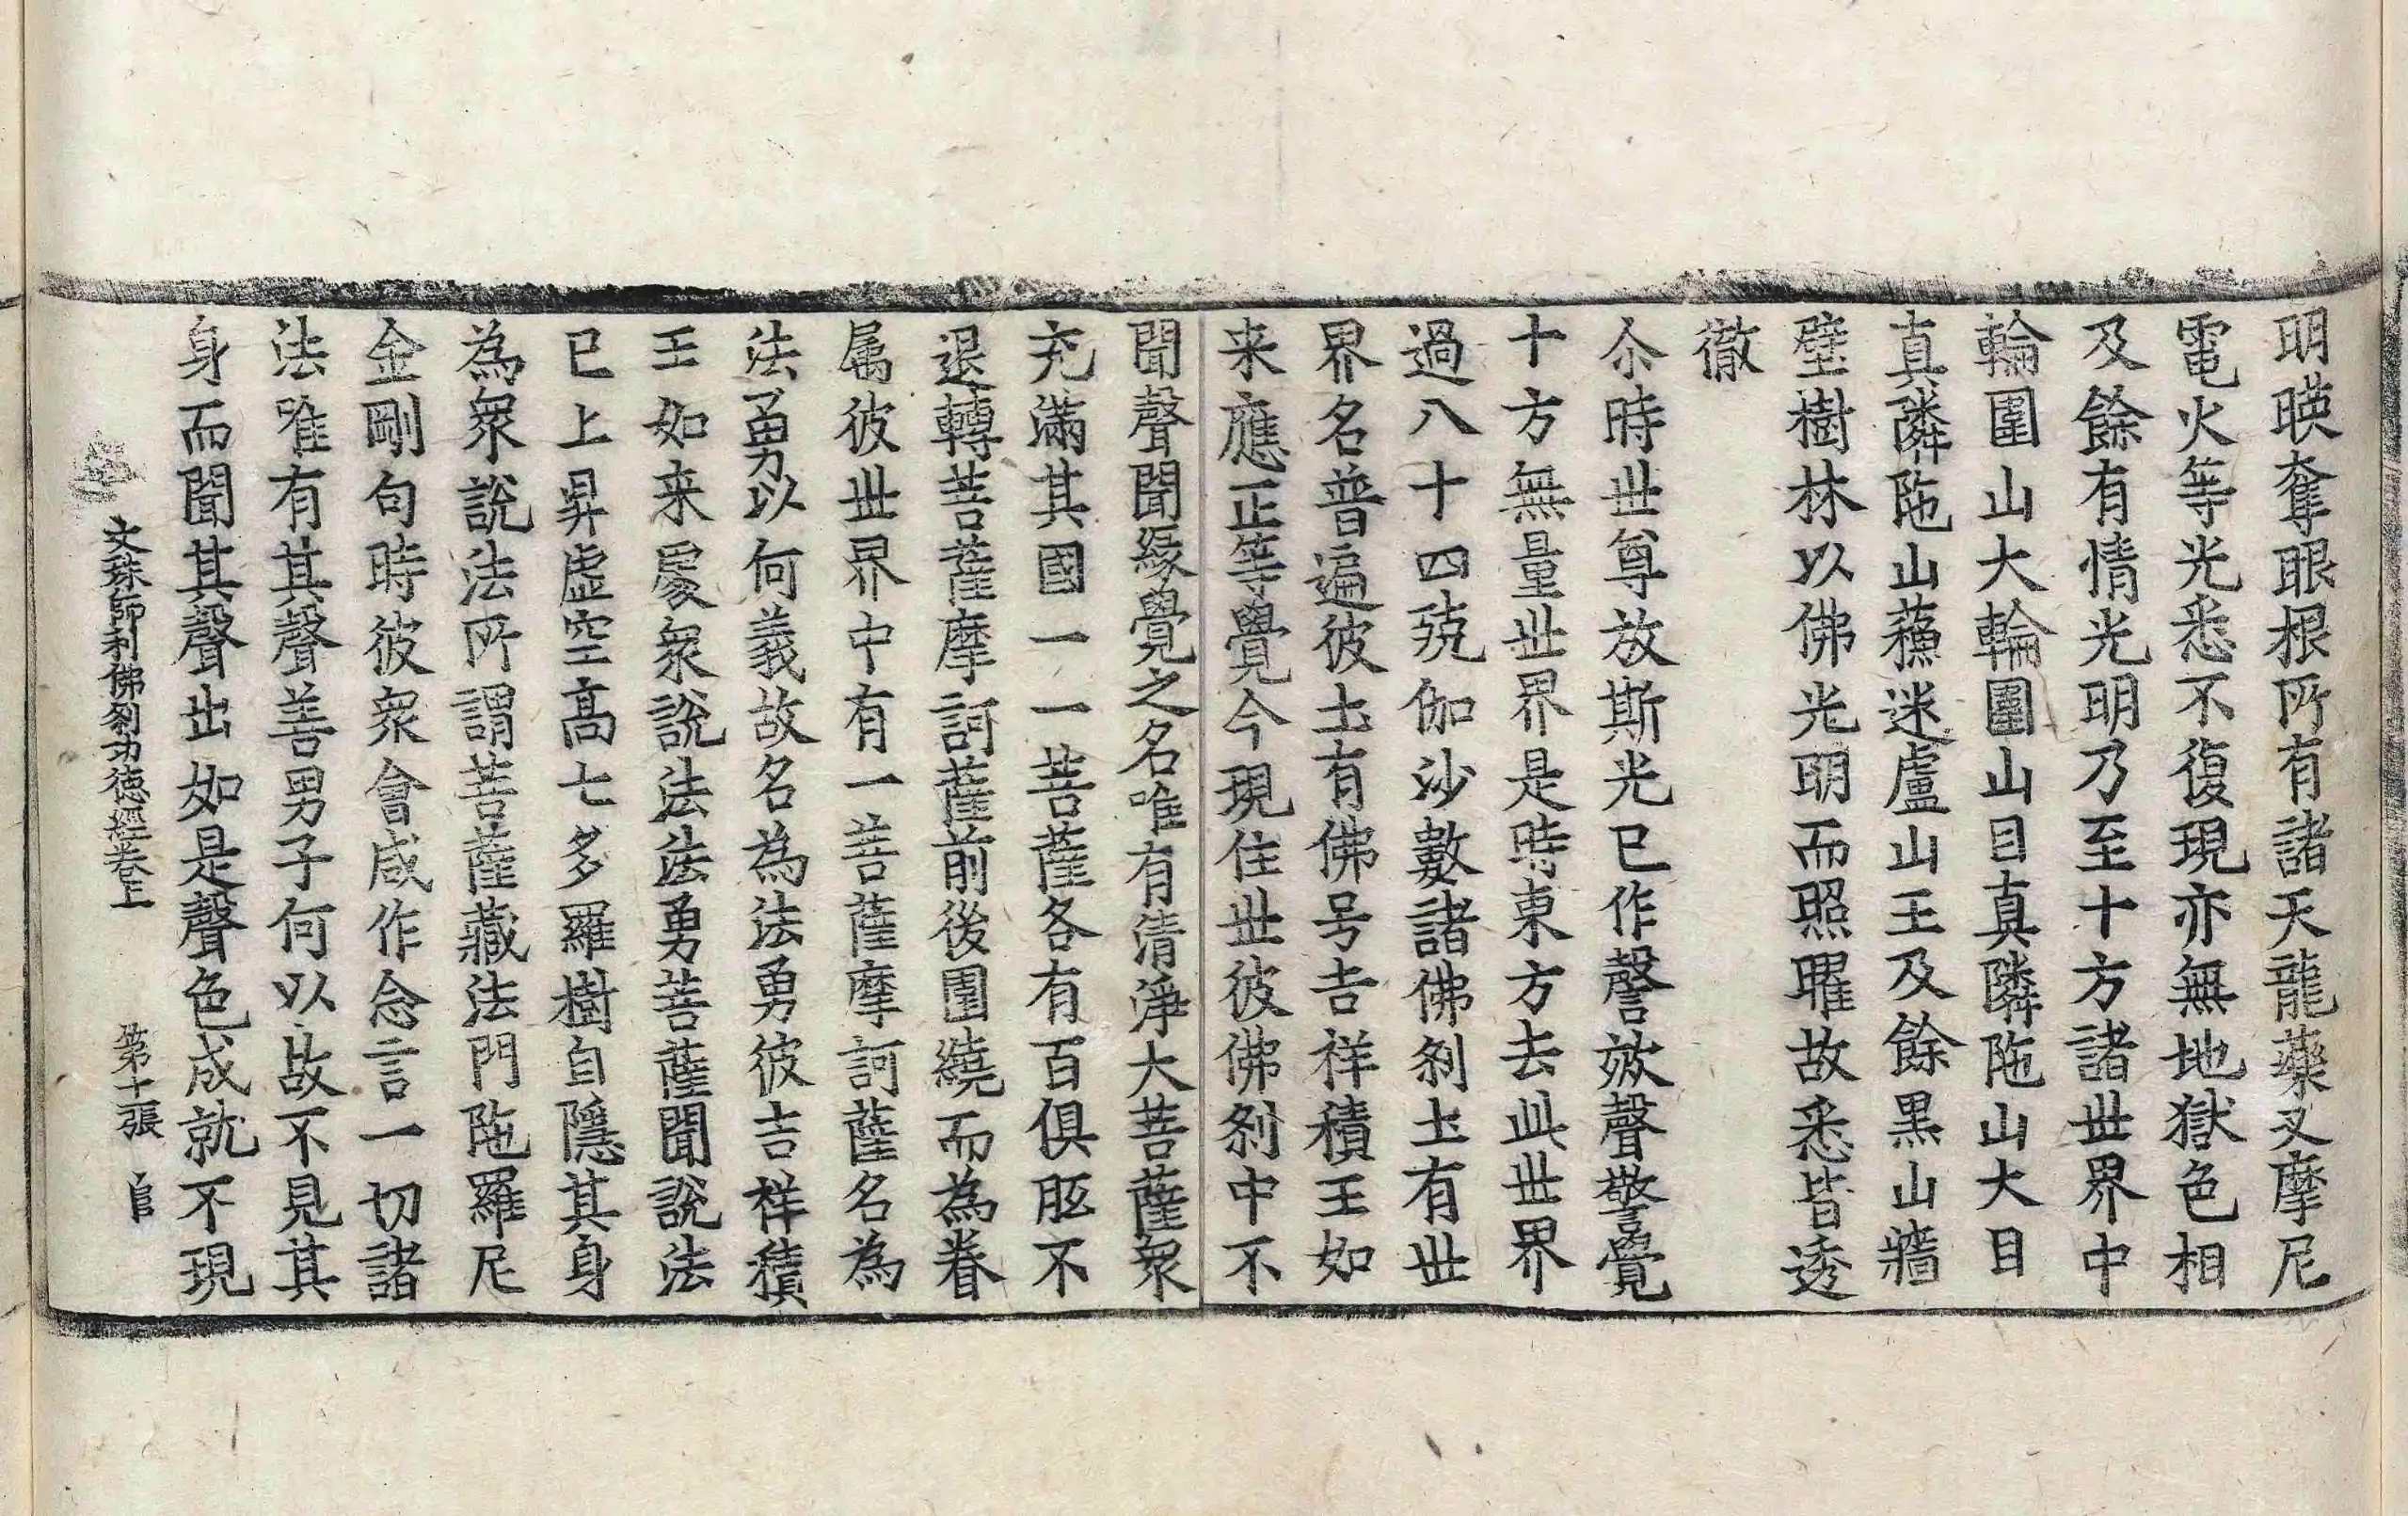 明暎奪眼根所有諸天龍藥叉摩尼
電火等光悉不復現亦無地獄色相
及餘有情光明乃至十方諸世界中
輪圍山大輪圍山目真隣陁山大目
真隣陁山蘓迷盧山王及餘黒山牆
壁樹林以佛光明而照曜故悉皆透
徹
尒時世尊放斯光已作謦欬聲警覺
十方無量世界是時東方去此世界
過八十四殑伽沙數諸佛刹土有世
界名普遍彼土有佛号吉祥積王如
来應正等覺今現住世彼佛刹中不
聞聲聞緣覺之名唯有清淨大菩薩衆
充滿其國一一菩薩各有百俱胝不
退轉菩薩摩訶薩前後圍繞而為眷
属彼世界中有一菩薩摩訶薩名為
法勇以何義故名為法勇彼吉祥積
王如来處衆說法法勇菩薩聞說法
已上昇虛空高七多羅樹自隱其身
為衆說法所謂菩薩藏法門陁羅尼
金剛句時彼衆會咸作念言一切諸
法唯有其聲善男子何以故不見其
身而聞其聲出如是聲色成就不現
文殊師利佛刹功德經卷上 第十張 官